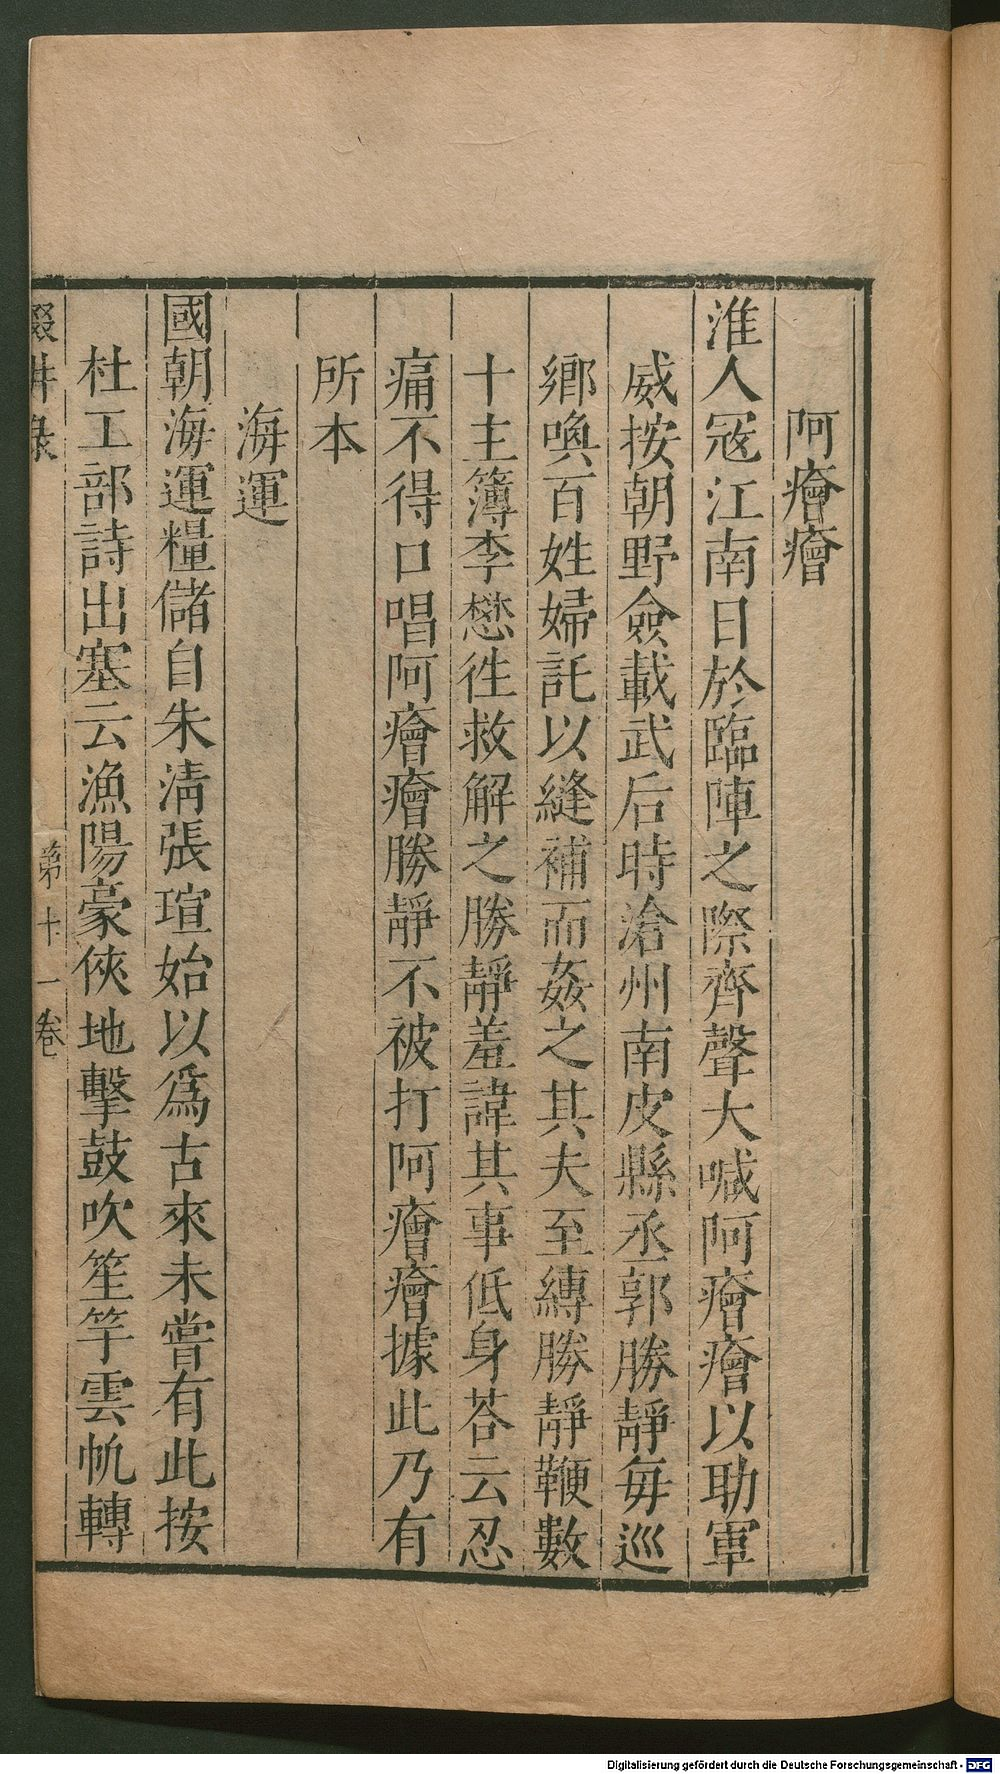 阿癐癐
淮人冦江南日於臨陣之際齊聲大喊阿癐癐以助軍
威按朝野僉載武后時滄州南皮縣丞郭勝靜每巡
鄉喚百姓婦託以縫補而姦之其夫至縛勝靜鞭數
十主簿李懋徃救解之勝靜羞諱其事低身荅云忍
痛不得口唱阿癐癐勝靜不被打阿癐癐據此乃有
所本
海運
國朝海運糧儲自朱清張瑄始以爲古來未嘗有此按
杜工部詩出塞云漁陽豪俠地擊鼓吹笙竽雲帆轉
輟畊录 第十一卷
Digitalisierung gefördert durch die Deutsche Forschungsgemeinschaft - DFG